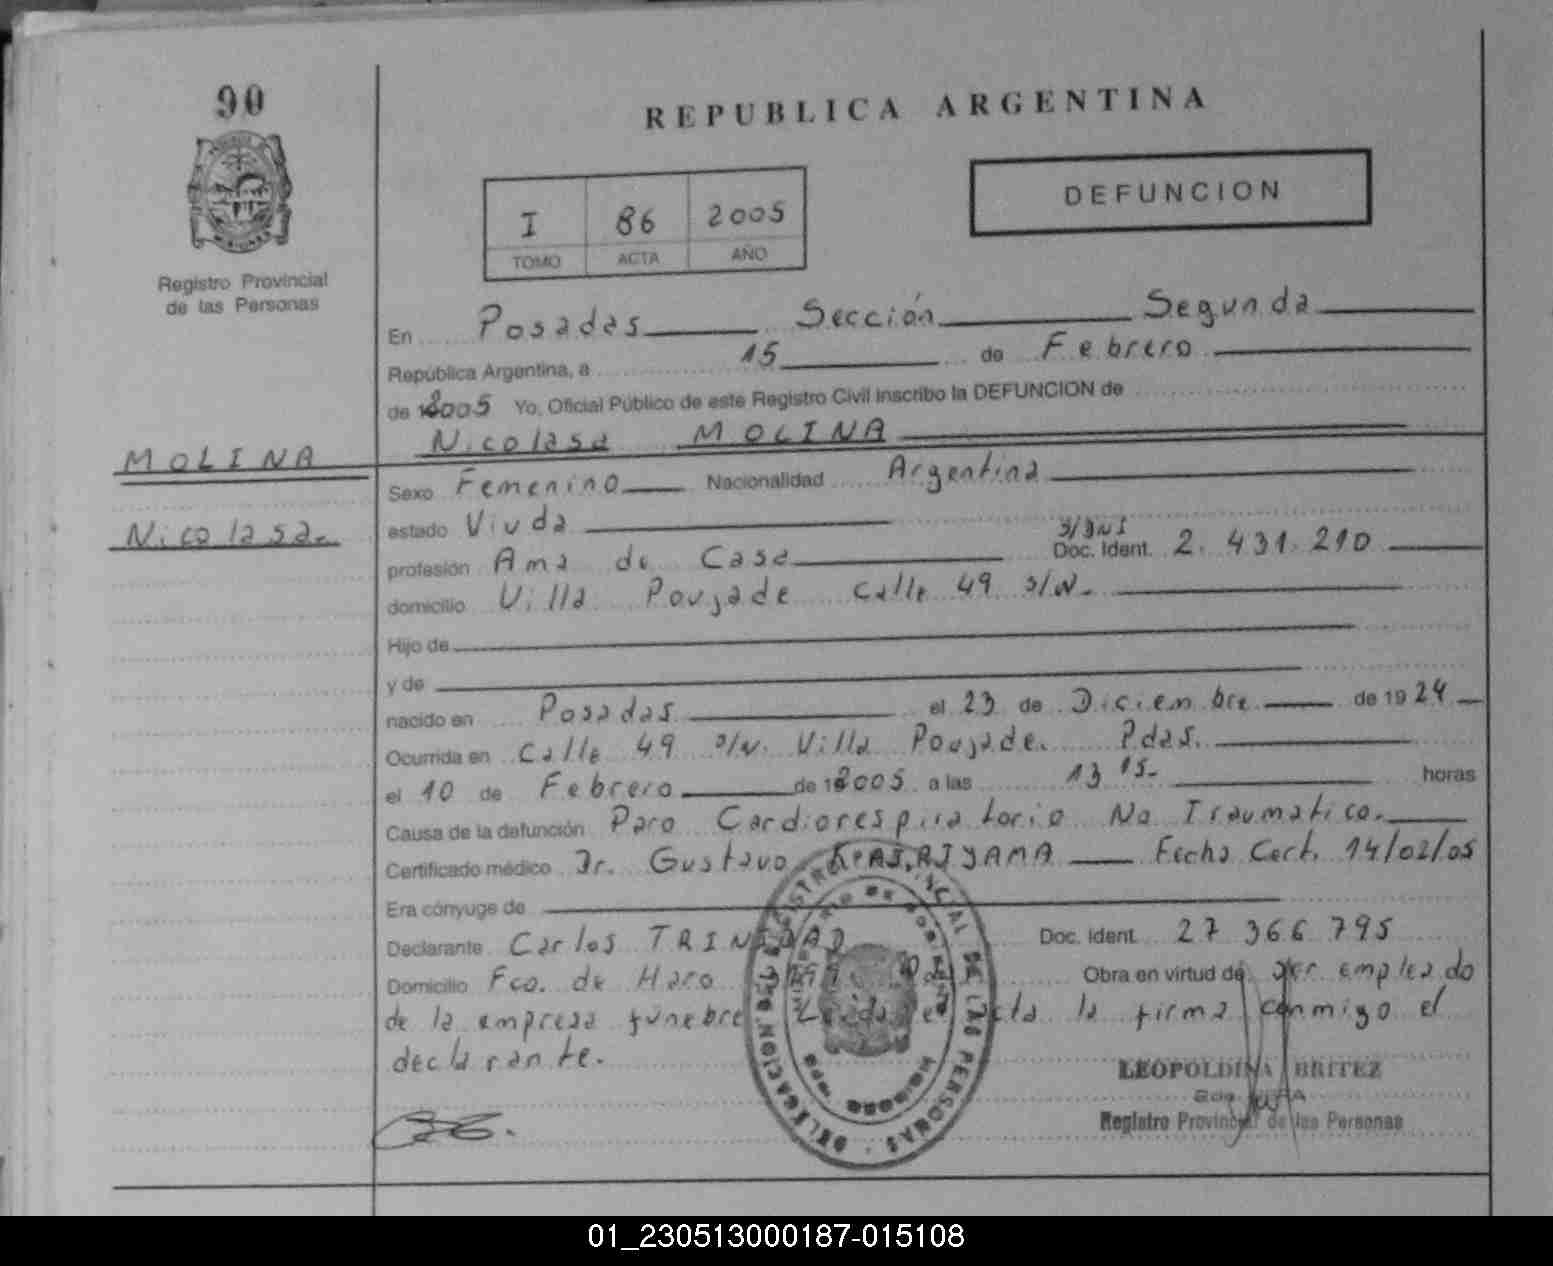 90
REPUBLICA ARGENTINA
DEFUNCION
I 86 2005
TOMO ACTA AÑO
Registro Provincial
de las Personas
En Posadas Sección Segunda
República Argentina, a 15 de Febrero
de 2005 Yo, Oficial Público de este Registro Civil inscribo la DEFUNCION de
Nicolasa MOLINA
MOLINA
Nicolasa.
Sexo Femenino Nacionalidad Argentina
estado Viuda
profesión Ama de Casa S/DNI Doc. Ident. 2.431.210
domicilio Villa Poujade calle 49 s/N.
Hijo de
y de
nacido en Posadas el 23 de Diciembre de 1924
Ocurrida en Calle 49 s/N. Villa Poujade. Pdas.
el 10 de Febrero de 2005 a las 13 15. horas
Causa de la defunción Paro Cardiorespiratorio No Traumatico.
Certificado médico Dr. Gustavo Fecha Cert. 14/02/05
Era cónyuge de
Declarante Carlos TRINIDAD Doc. Ident. 27 366 795
Domicilio Fco. de Haro Obra en virtud de ser empleado
de la empresa funebre la firma conmigo el
declarante.
LEOPOLDINA BRITEZ
Registro Provincial de las Personas
REGISTRO PROVINCIAL DE LAS PERSONAS
01_230513000187-015108